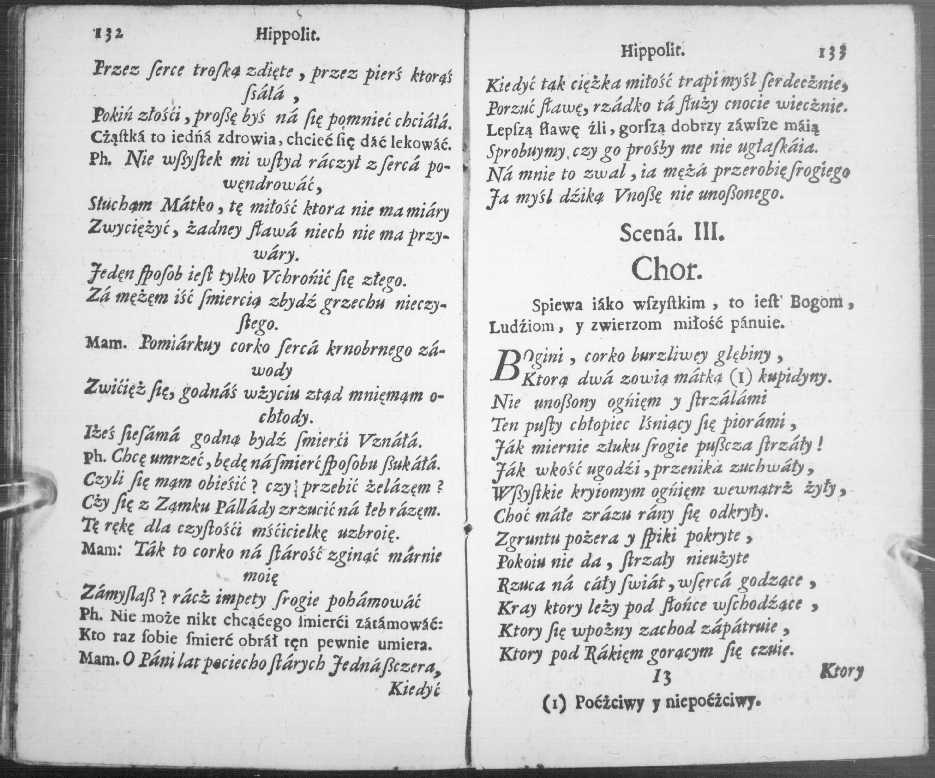 132 Hippolit.
Przez ſerce troſką zdięte, przez pierś ktorąś
ſsáłá,
Pokiń złośći, proſzę byś ná ſię pomnieć chciáłá.
Cżąſtká to iedná zdrowia, chcieć ſię dáć lekowáć.
Ph. Nie wſßyſtek mi wſtyd ráczył z ſercá po-
wędrowáć,
Słucham Mátko, tę miłość ktora nie ma miáry
Zwyciężyć, żadney ſławá niech nie ma przy-
wáry.
Jedęn ſpoſob ieſt tylko Vchrońić ſię złego.
Zá mężęm iść ſmiercią zbydź grzechu nieczy-
ſtego.
Mam. Pomiárkuy corko ſercá krnobrnego zá-
wody
Zwićięż ſię, godnáś wżyciu ztąd mnięmąm o-
chłody.
Iżeś ſieſámá godną bydź ſmierći Vznáłá.
Ph. Chcę umrzeć, będę ná śmierć ſpoſobu ſßukáłá.
Czyli ſię mąm obieśić? czy przebić żelázęm?
Cży ſię z Ząmku Pállády zrzucić ná łeb rázęm.
Tę rękę dla czyſtośći mśćicielkę uzbroię.
Mam: Ták to corko ná ſtárość zginąć márnie
moię
Zámyſlaß? rácż impety ſrogie pohámowáć
Ph. Nie może nikt chcąćego śmierći zátámowáć:
Kto raz ſobie ſmierć obráł tęn pewnie umiera.
Mam. O Páni lat pociecho ſtárych Jednáßczera,
Kiedyć
Hippolit. 133
Kiedyć tak ciężka miłość trapi myśl ſerdecżnie,
Porzuć ſławę, rzádko tá ſłuży cnocie wiecżnie.
Lepſzą ſławę źli, gorſzą dobrzy záwſze máią
Sprobuymy, czy go prośby me nie ugłaſkáia.
Ná mnie to zwal, ia mężá przerobię ſrogiego
Ja myśl dźiką Vnoßę nie unoßonego.
Scená. III.
Chor.
Spiewa iáko wſzyſtkim, to ieſt Bogom,
Ludźiom, y zwierzom miłość pánuie.
BOgini, corko burzliwey głębiny,
Ktorą dwá zowią mátką (1) kupidyny.
Nie unoßony ogńięm y ſtrzáłámi
Ten puſty chłopiec lśniący ſię piorámi,
Ják miernie złuku ſrogie pußcza ſtrzáły!
Ják wkość ugodźi, przenika zuchwáły,
Wſßyſtkie kryiomym ogńięm wewnątrż żyły,
Choć máłe zrázu rány ſię odkryły.
Zgruntu pożera y ſpiki pokryte,
Pokoiu nie da, ſtrzały nieużyte
Rzuca ná cáły ſwiát, wſercá godzące,
Kray ktory leży pod ſłońce wſchodźące,
Ktory ſię wpożny zachod zápátruie,
Ktory pod Rákięm gorącym ſię czuie.
I3 Ktory
(1) Poćżciwy y niepoćżciwy.